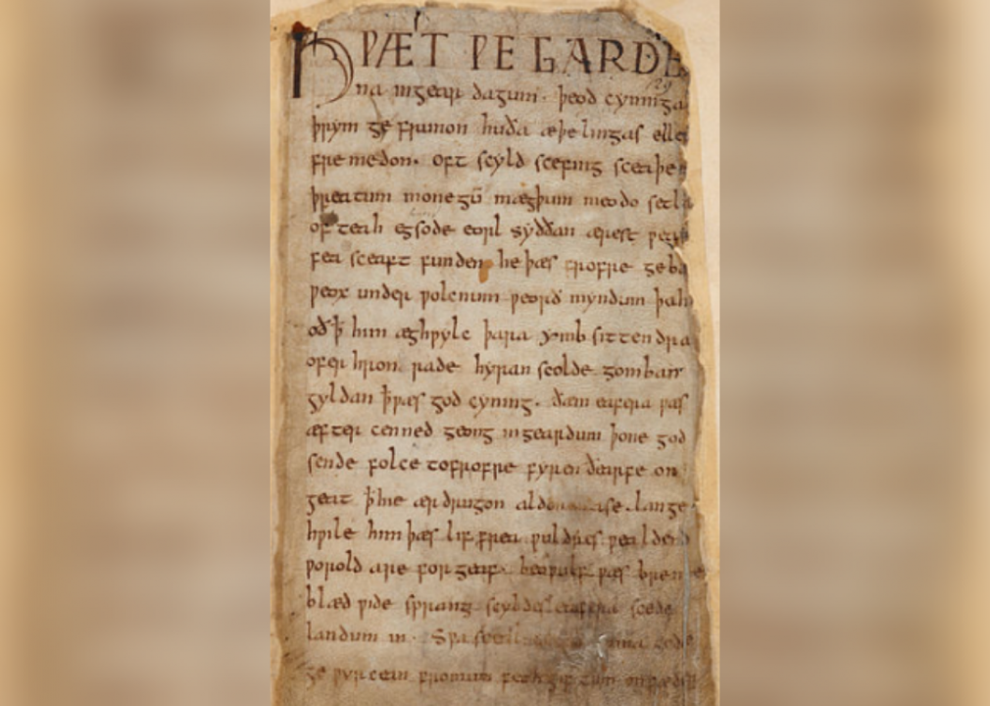 HǷÆT ǷE GARDE
na ingear dagum. þeod cyninga
þrym ge frunon huða æþelingas elle
fremedon. oft scyld scefing sceaþe
þreatum monegū mægþum meodo setla
of teah egsode eorl syððan ærest ƿear
fea sceaft funden he þæs frofre geba
ƿeox under ƿolcnum ƿeorð myndum þah
oð ꝥ him æghƿylc þara ymb sittendra
ofer hron rade hyran scolde gomban
gyldan ꝥ ƿæs god cyning. ðæm eafera ƿæs
æfter cenned geong ingeardum þone god
sende folce tofrofre fyren ðearfe on
geat ꝥ hie ær drugon aldor ase. lange
hƿile him þæs lif frea ƿuldres ƿealdend
ƿorold are for geaf. beoƿulf ƿæs breme
blæd ƿide sprang scyldes eafera scede
landum in. Sƿa
ge ƿyrcean fromum feoh giftum